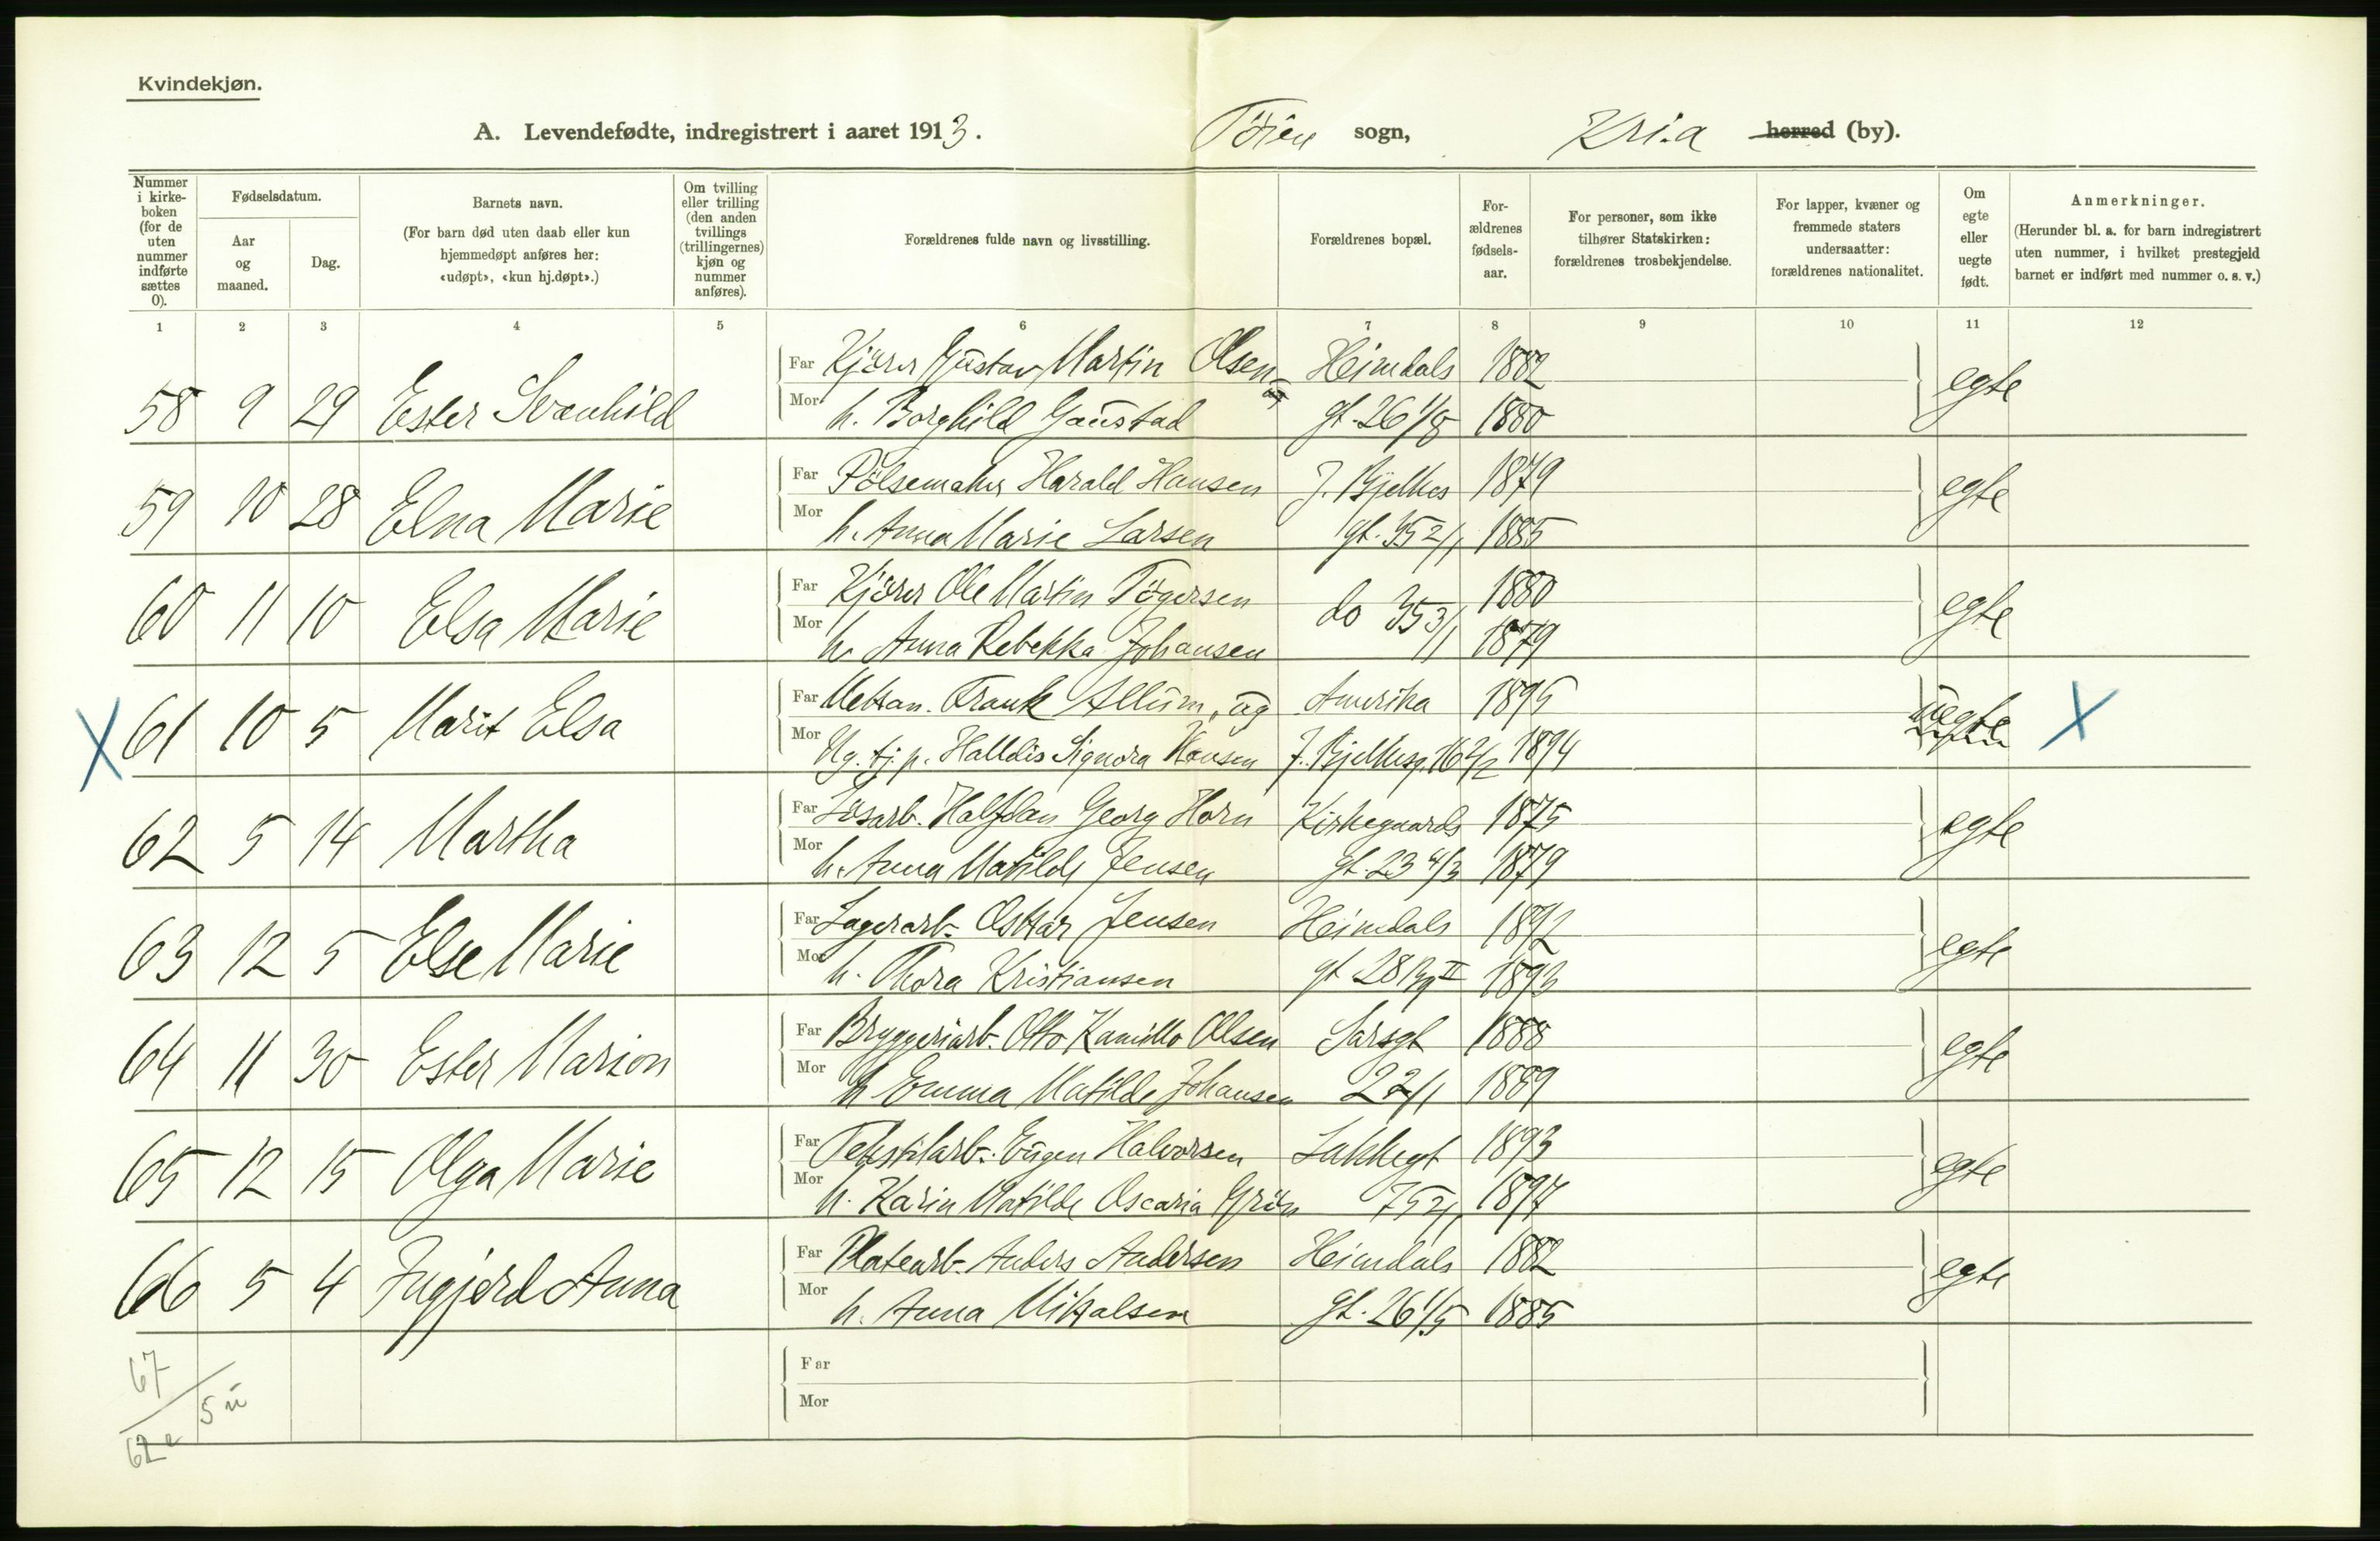 Kvindekjøn.
A. Levendefødte, indregistrert i aaret 1913. Tøien sogn, Kria herred (by).
Nummer i kirke-boken (for de uten nummer indførte sættes 0).
Fødselsdatum.
Aar og maaned.
Dag.
Barnets navn.
(For barn død uten daab eller kun hjemmedøpt anføres her: «udøpt», «kun hj.døpt».)
Om tvilling eller trilling (den anden tvillings (trillingernes) kjøn og nummer anføres).
Forældrenes fulde navn og livsstilling.
Forældrenes bopæl.
For-ældrenes fødsels-aar.
For personer, som ikke tilhører Statskirken: forældrenes trosbekjendelse.
For lapper, kvæner og fremmede staters undersaatter: forældrenes nationalitet.
Om egte eller uegte født.
Anmerkninger.
(Herunder bl. a. for barn indregistrert uten nummer, i hvilket prestegjeld barnet er indført med nummer o. s. v.)
1 2 3 4 5 6 7 8 9 10 11 12
Far Kjører Gustav Martin Olsen Heimdals 1882
58 9 29 Ester Svanhild egte
Mor h. Borghild Gaustad gt. 26 1/8 1880
Far Pölsemaker Harald Hansen J. Bjelkes 1879
59 10 28 Elna Marie egte
Mor h. Anna Marie Larsen gt. 35 2/1 1885
Far Kjörer Ole Martin Tögersen 1880
60 11 10 Elsa Marie do 35 3/1 egte
Mor h. Anna Rebekka Johansen 1879
Far Mekan. Frank Allum, ug Amerika 1895
X 61 10 5 Marit Elsa uegte X
Mor Ug. tj.p. Halldis Signora Hansen J. Bjelkesg. 16 2/2 1894
Far Løsarb. Halfdan Georg Horn Kirkegaards 1875
62 5 14 Martha egte
Mor h. Anna Matilde Jensen gt. 23 4/3 1879
Far Lagerarb. Oskar Jensen Heimdals 1892
63 12 5 Else Marie egte
Mor h. Thora Kristiansen gt 28 II 1893
Far Bryggeriarb. Otto Kamillo Olsen Sarsgt 1888
64 11 30 Ester Marion egte
Mor h Emma Matilde Johansen 22/1 1889
Far Tekstilarb. Eugen Halvorsen Lakkegt 1893
65 12 15 Olga Marie egte
Mor h. Karin Matilde Oscaria 1897
Far Platearb. Anders Andersen Heimdals 1882
66 5 4 Ingjerd Anna egte
Mor h. Anna Mikalsen gt. 26 1/5 1885
Far
67
5 u
Mor
62 e